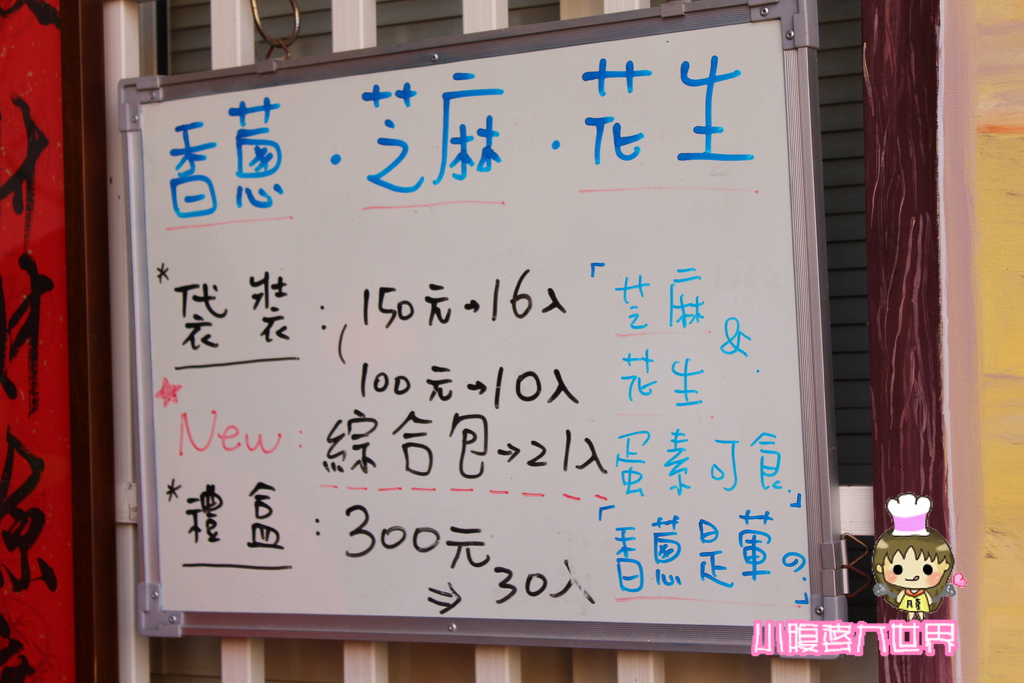 香蔥·芝麻·花生
*袋裝: 150元→16入
100元→10入
★New: 綜合包→21入
*禮盒: 300元
⇒30入
「芝麻&
花生
蛋素可食」
「香蔥是葷の」
小腹婆大世界